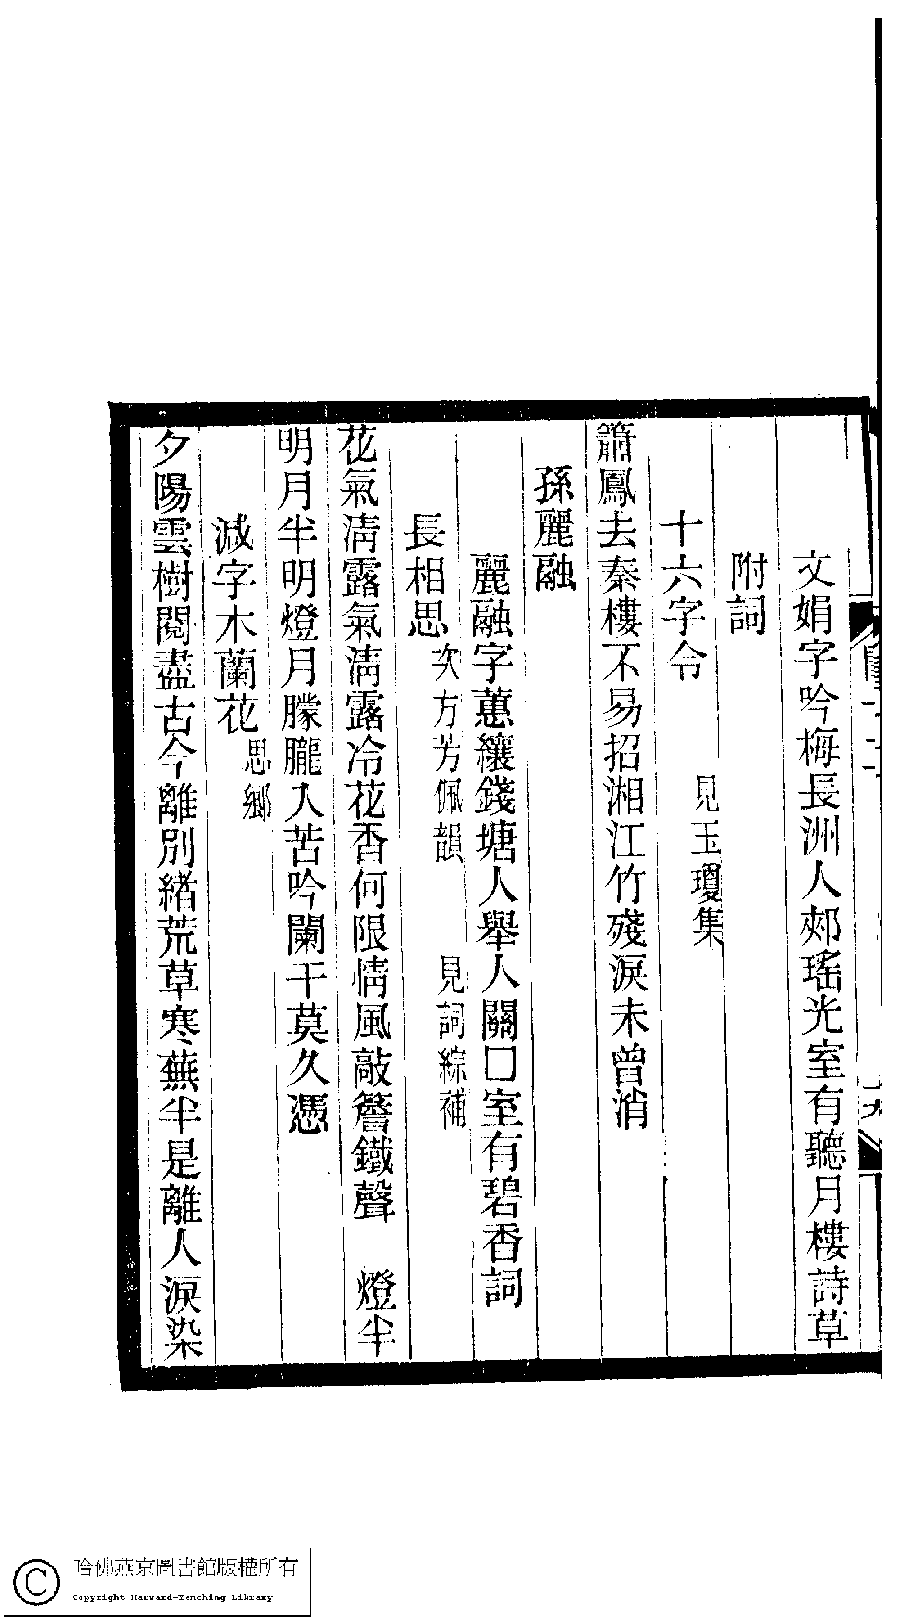 文娟字吟梅長洲人郟瑤光室有聽月樓詩草
附詞
十六字令　見玉瓊集
簫鳳去秦樓不易招湘江竹殘淚未曾消
孫麗融
麗融字蕙纕錢塘人舉人關囗室有碧香詞
長相思　次方芳佩韻　見詞綜補
花氣淸露氣淸露冷花香何限情風敲簷鐵聲　燈半
明月半明燈月朦朧人苦吟闌干莫久憑
減字木蘭花　思鄉
夕陽雲樹閱盡古今離別緒荒草寒蕪半是離人淚染
哈佛燕京圖書館版權所有
Copyright Harvard-Yenching Library